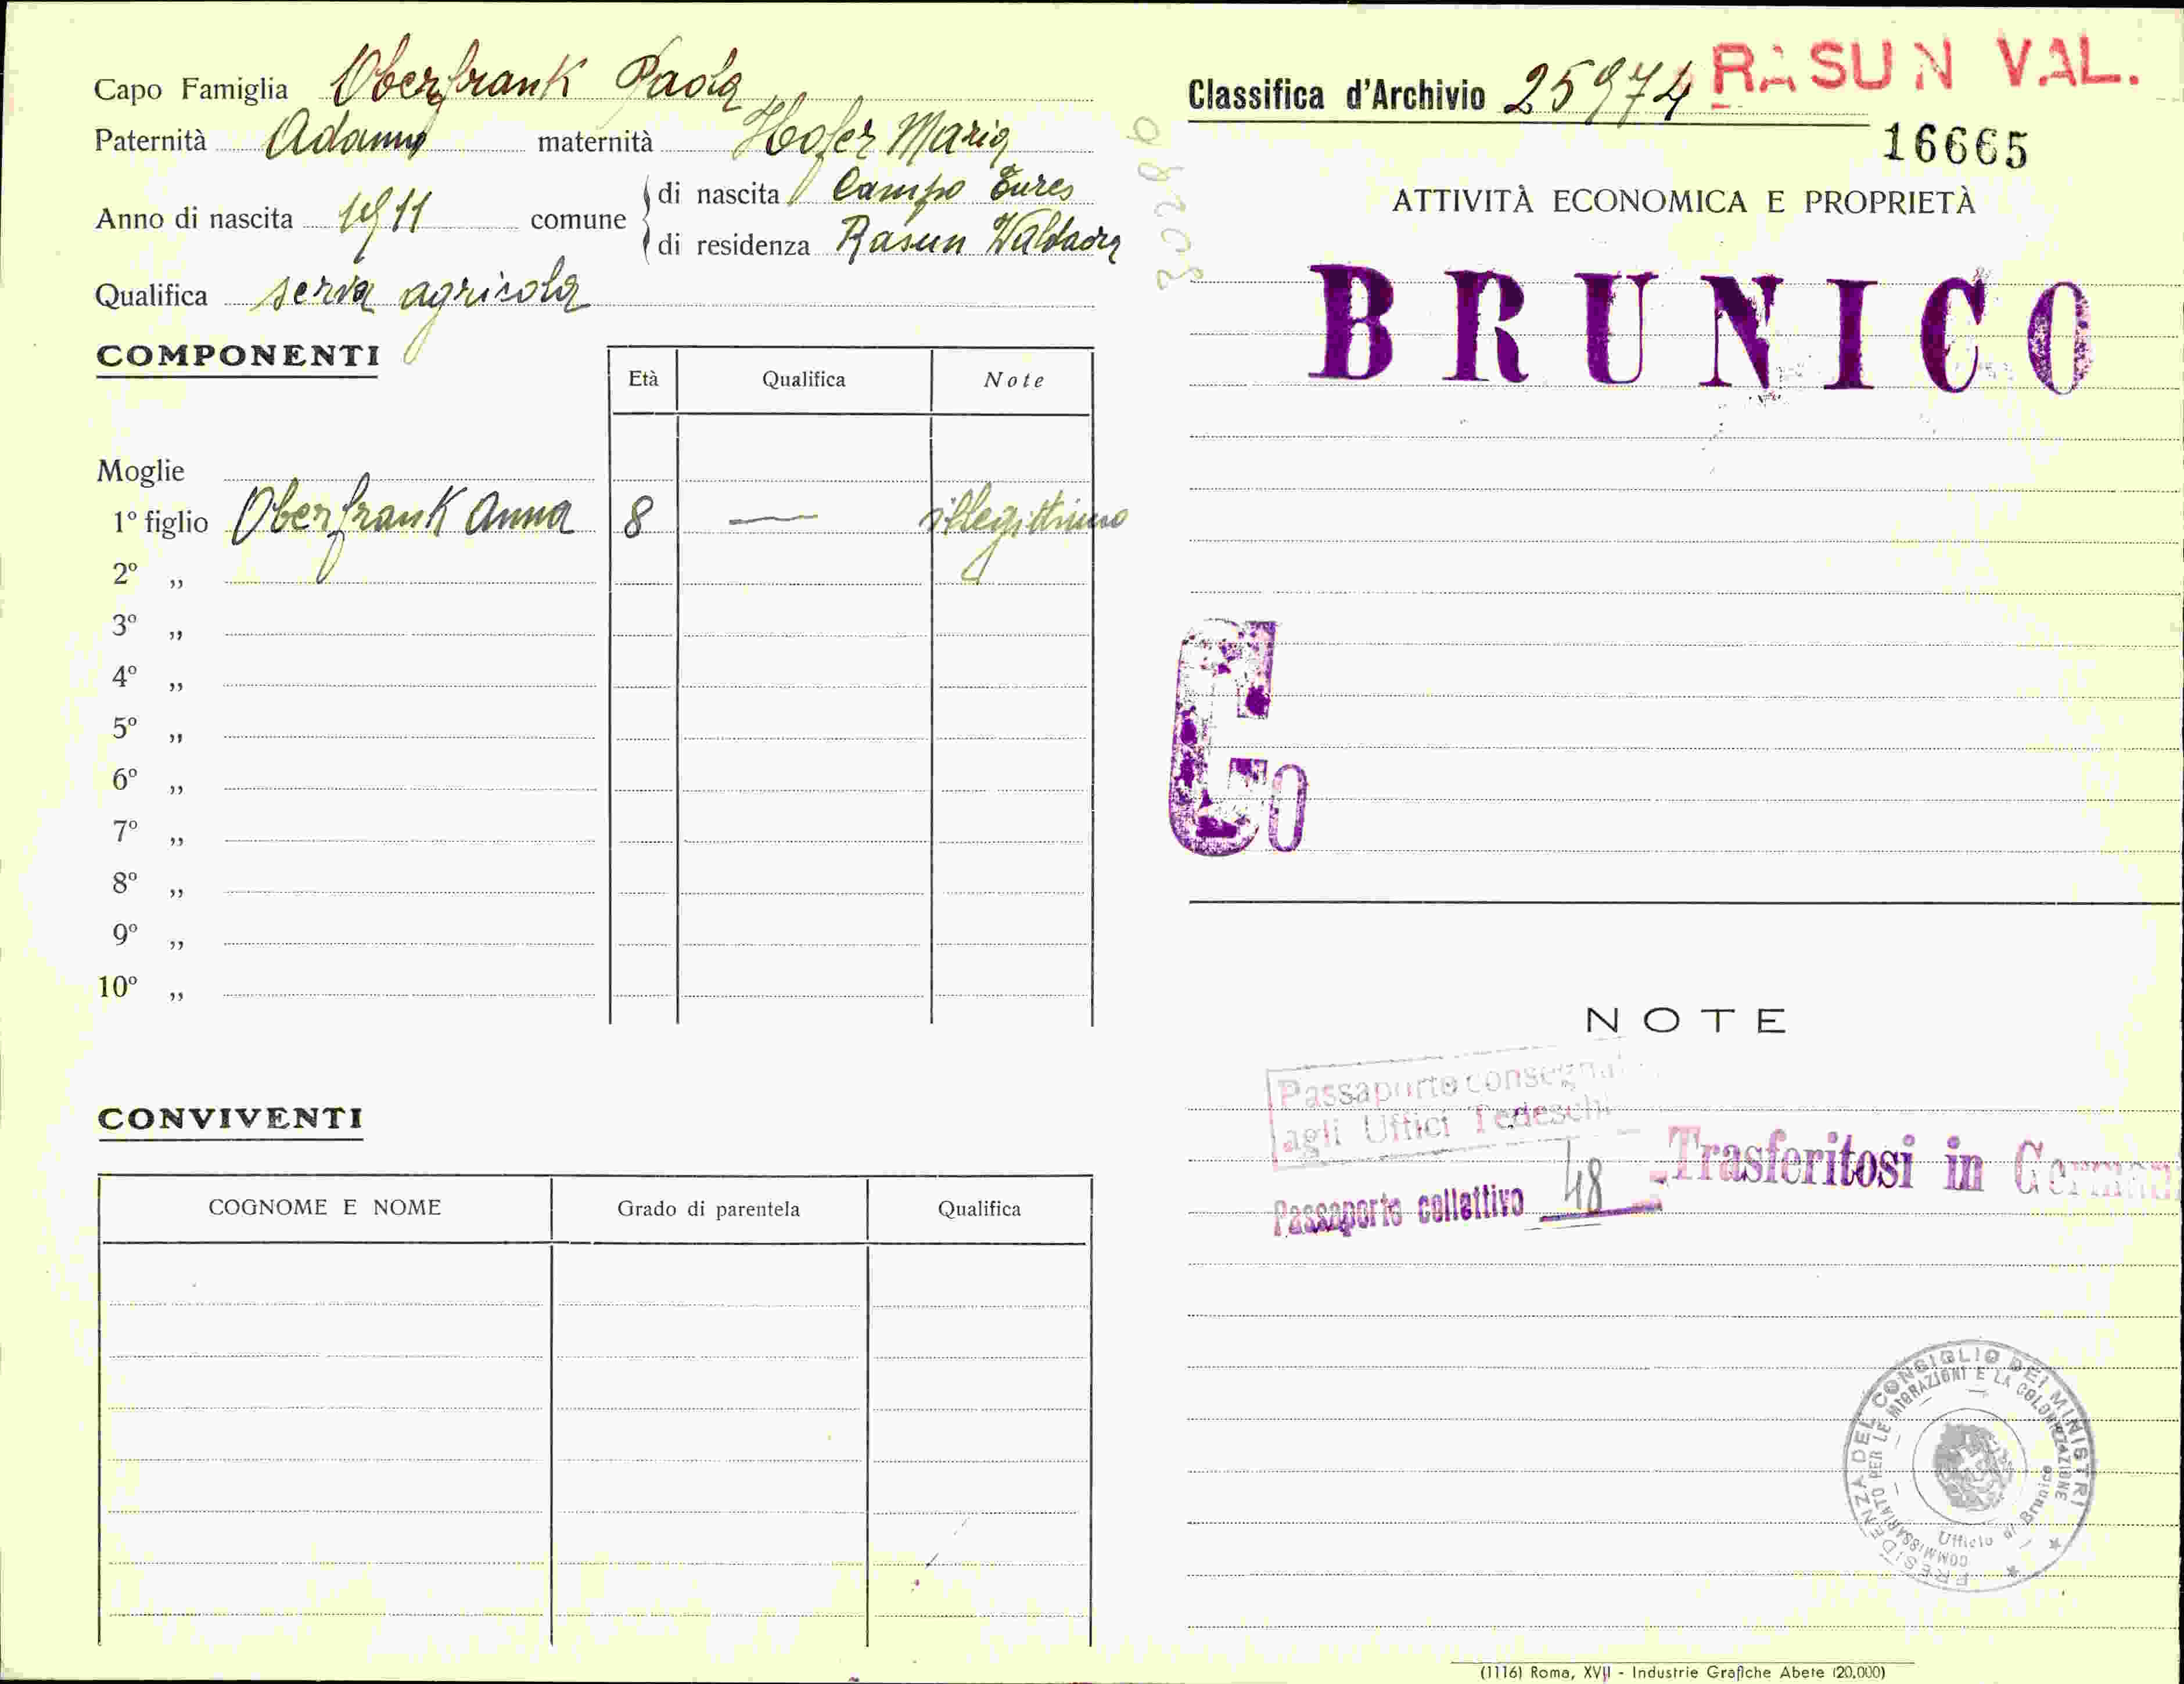 Capo Famiglia Oberfrank Paola
Paternità Adamo maternità Hofer Maria
Anno di nascita 1911 comune di nascita Campo Tures
di residenza Rasun Valdaora
Qualifica serva agricola
COMPONENTI
Età Qualifica Note
Moglie
1º figlio Oberfrank Anna 8 — illegittimo
2º „
3º „
4º „
5º „
6º „
7º „
8º „
9º „
10º „
CONVIVENTI
COGNOME E NOME Grado di parentela Qualifica
Classifica d'Archivio 25974 RASUN VAL.
16665
ATTIVITÀ ECONOMICA E PROPRIETÀ
BRUNICO
NOTE
Passaporto
agli Uffici Tedeschi
Trasferitosi in
Passaporto collettivo 48
PRESIDENZA DEL CONSIGLIO DEI MINISTRI
COMMISSARIATO PER LE MIGRAZIONI E LA COLONIZZAZIONE
Ufficio di Brunico
(1116) Roma, XVII - Industrie Grafiche Abete (20.000)